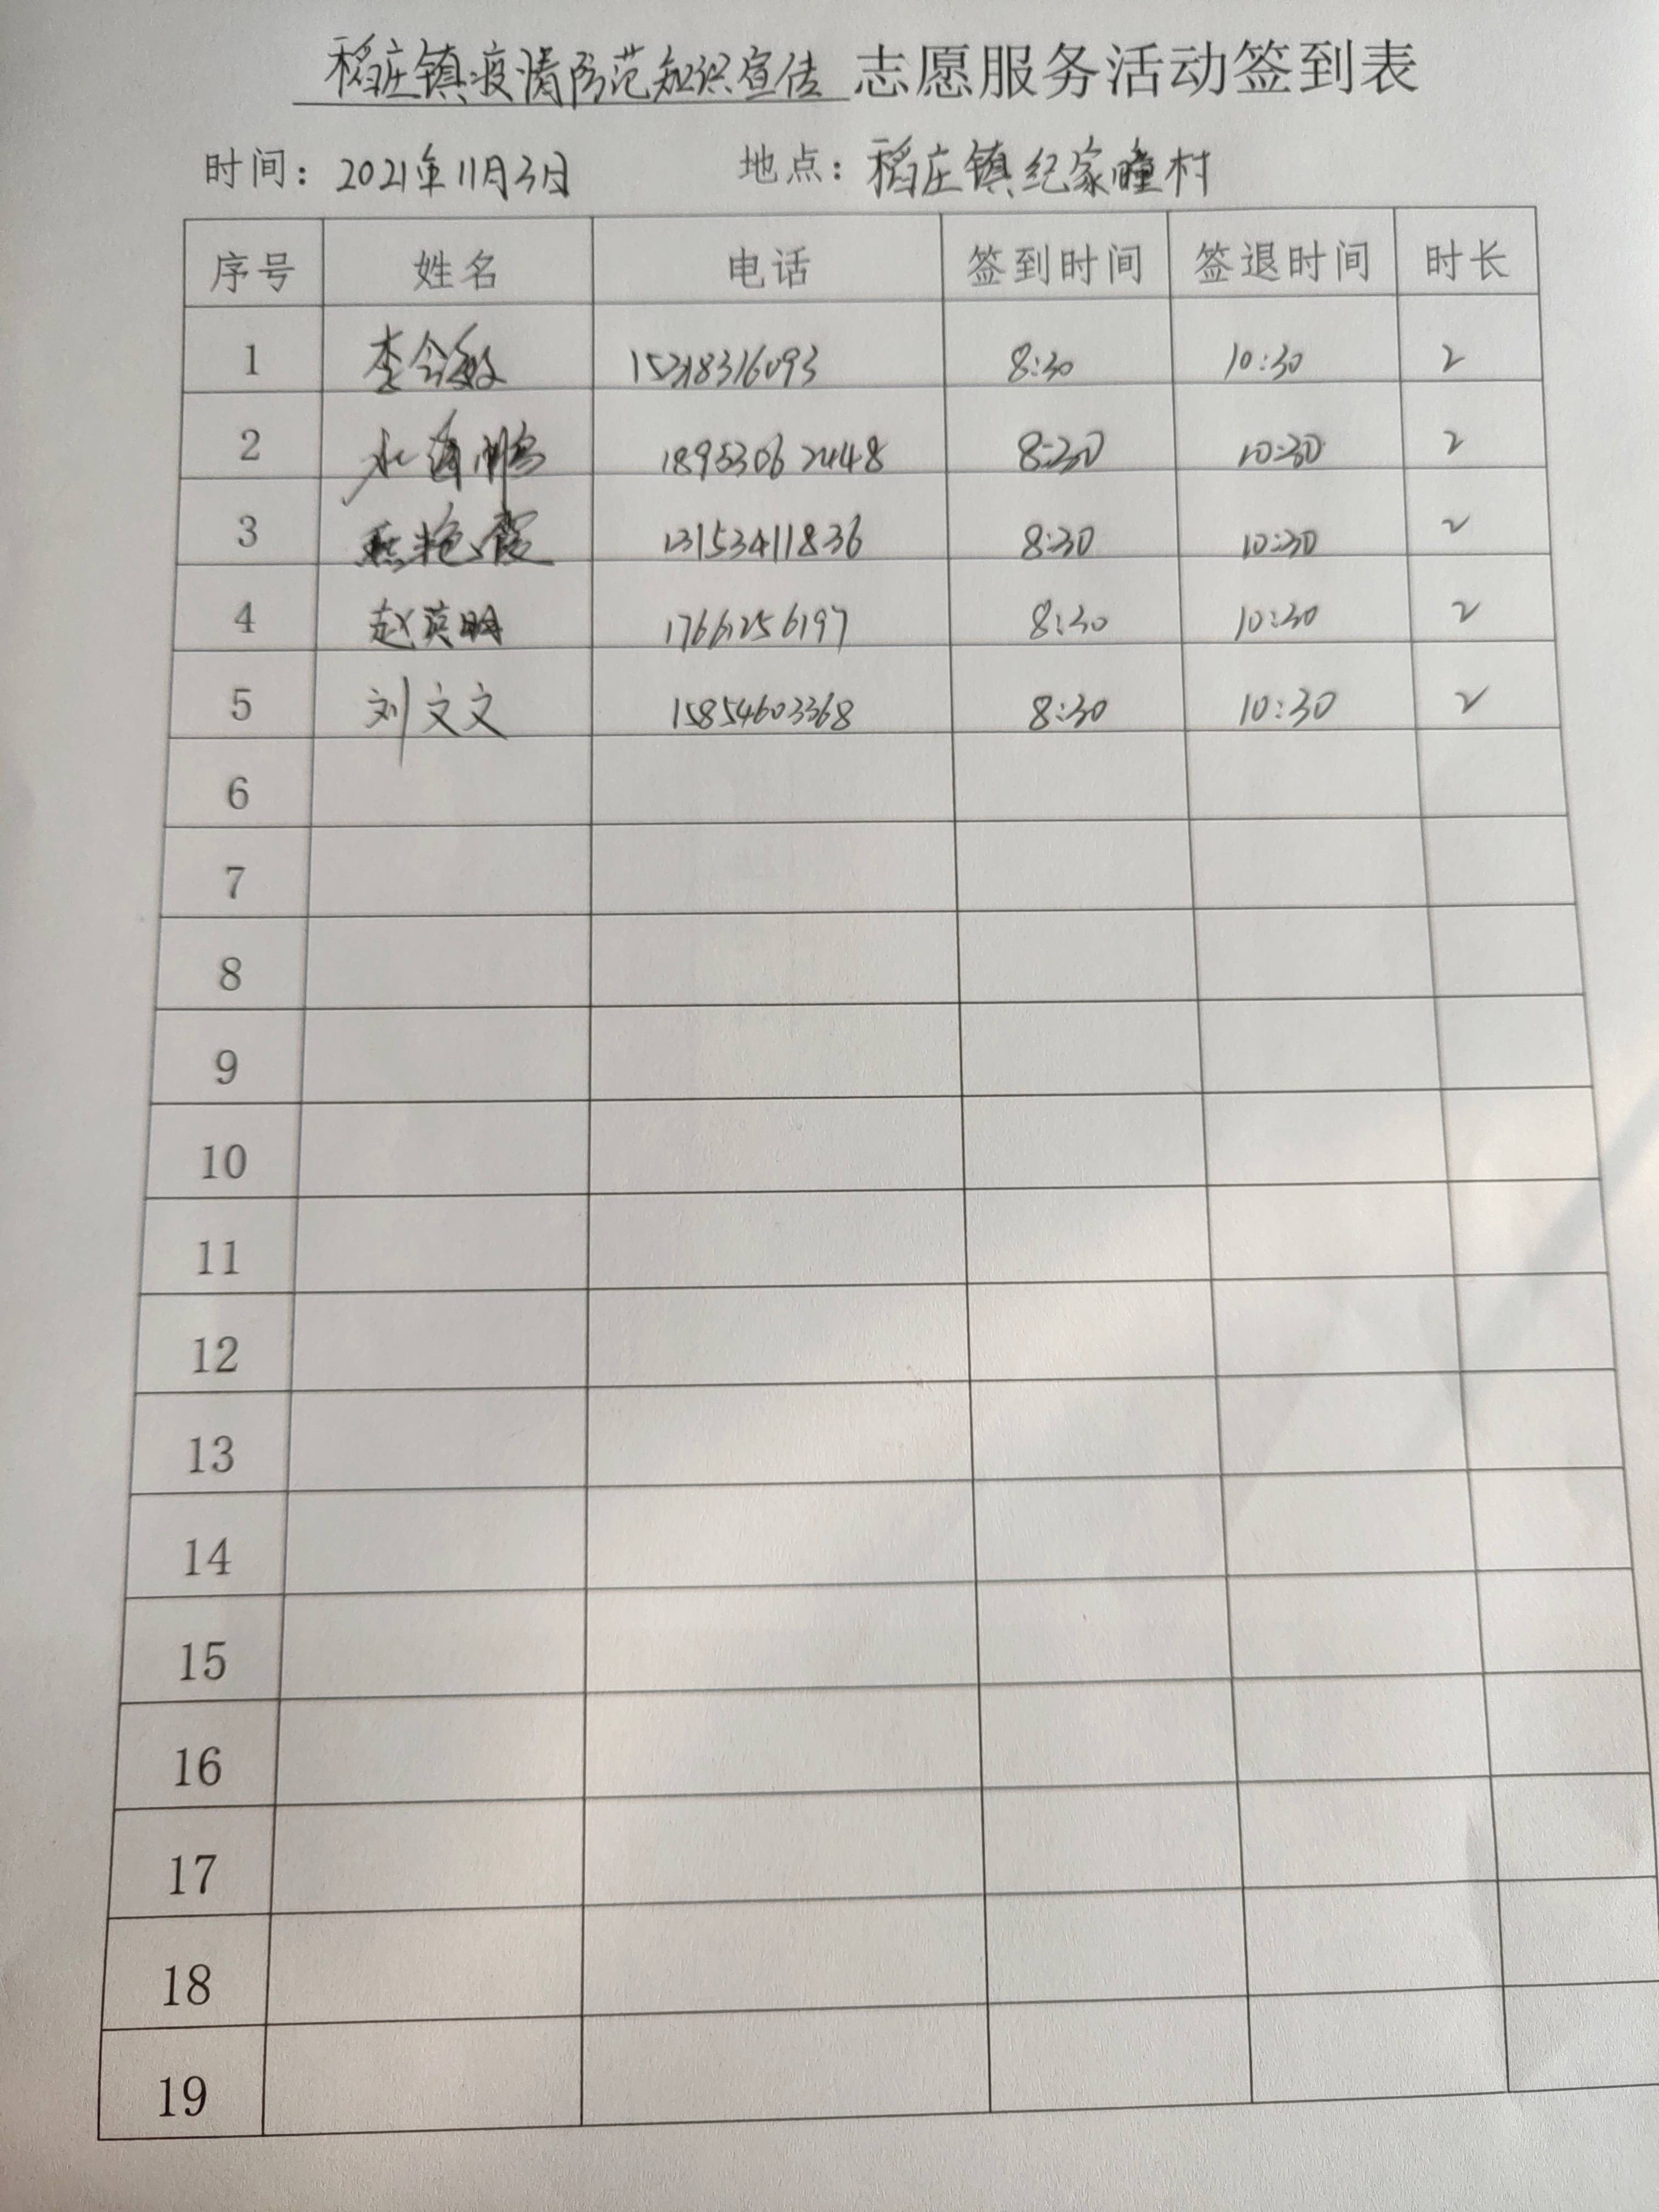 稻庄镇疫情防范知识宣传 志愿服务活动签到表
时间：2021年11月3日 地点：稻庄镇纪家疃村
序号 姓名 电话 签到时间 签退时间 时长
1 李会敏 8:30 10:30 2
2 18953062448 8:30 10:30 2
3 艳霞 13153411836 8:30 10:30 2
4 赵英明 17661256197 8:30 10:30 2
5 刘文文 15854603368 8:30 10:30 2
6
7
8
9
10
11
12
13
14
15
16
17
18
19